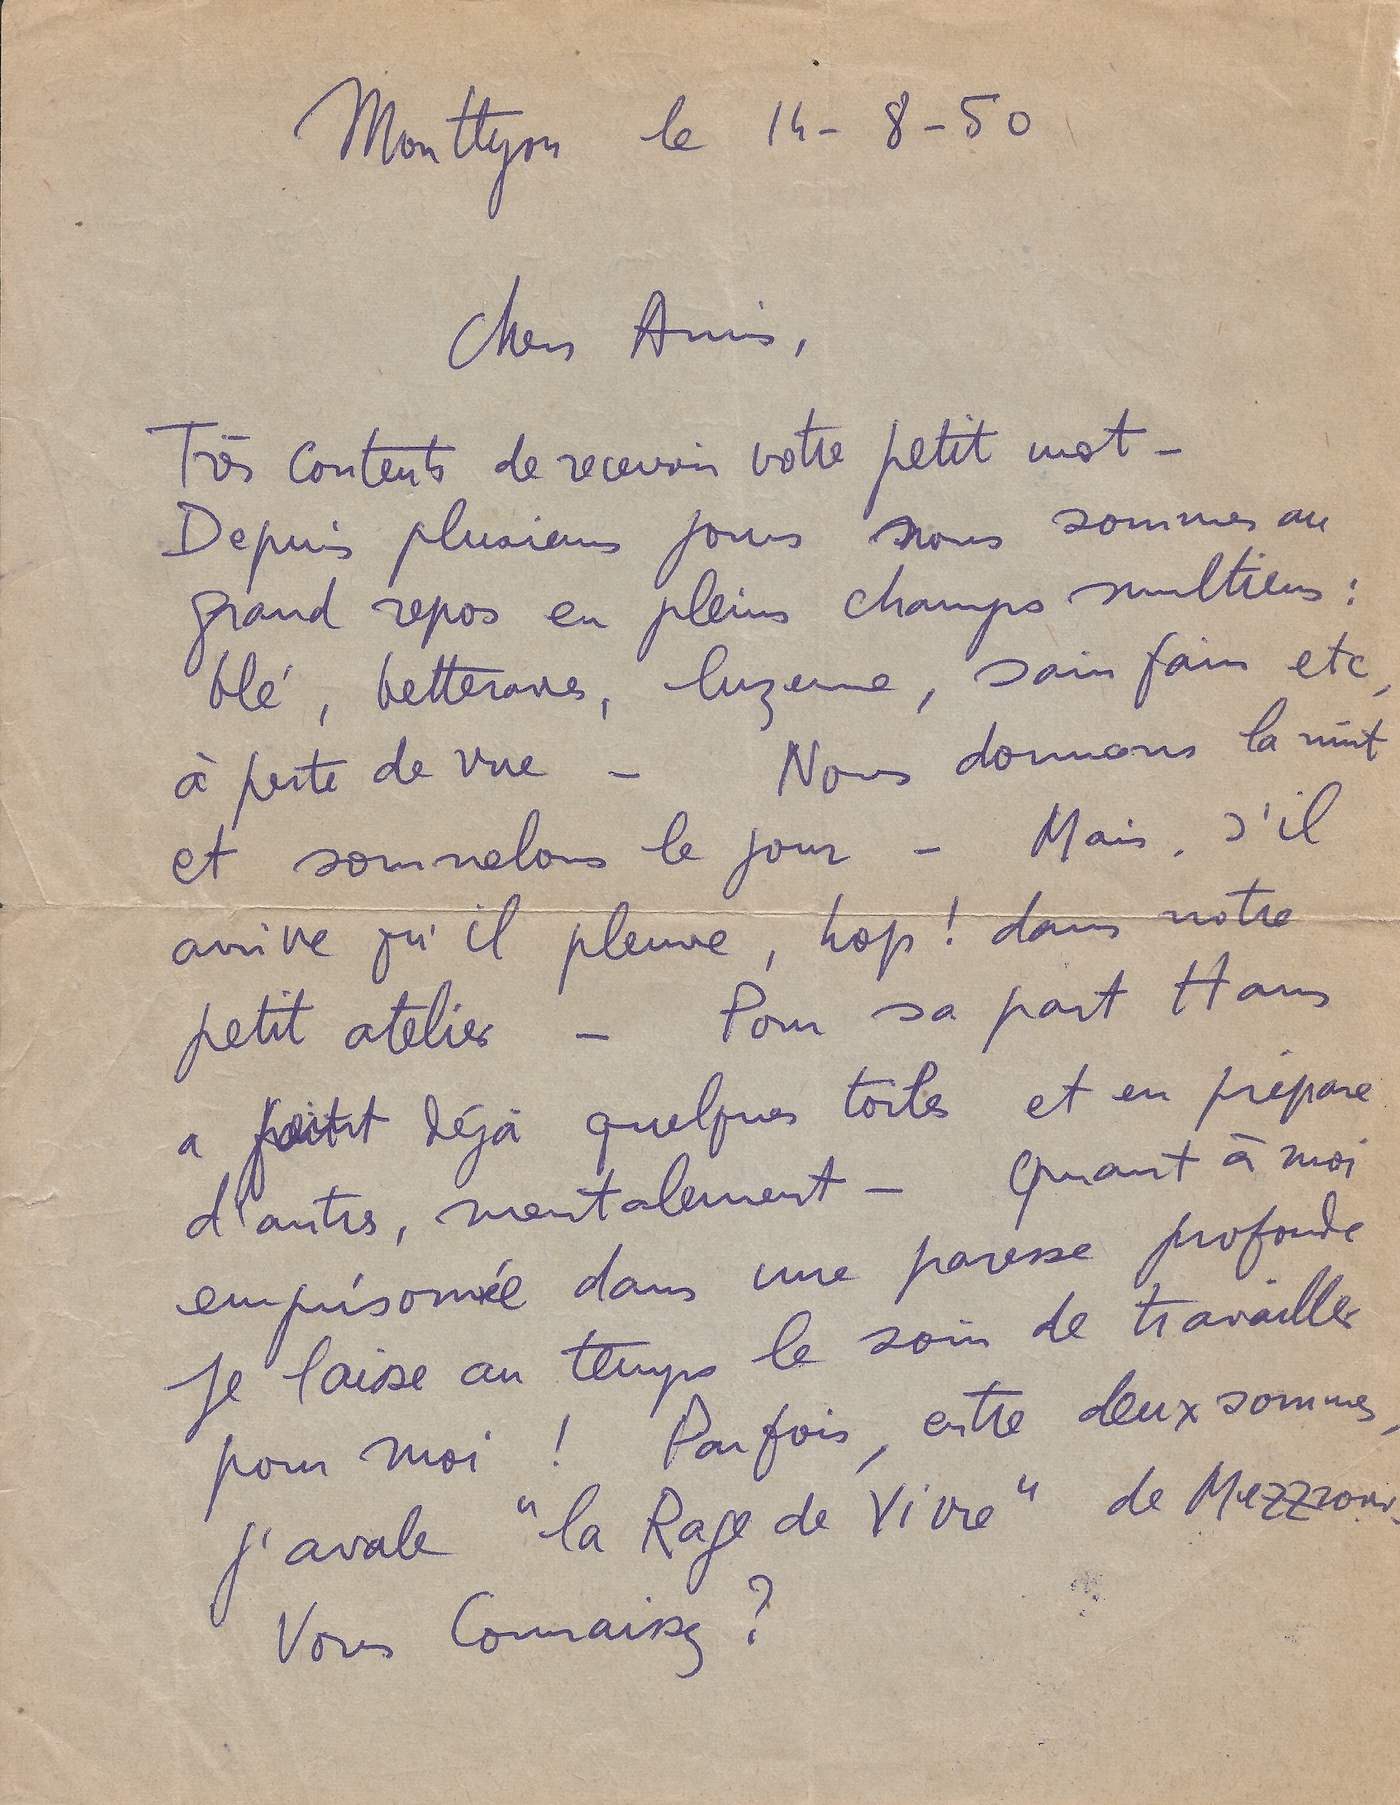 Monttyon le 14-8-50
Chers Amis,
Très Contents de recevoir votre petit mot -
Depuis plusieurs jours nous sommes au
grand repos en pleins champs multiens :
blé, betteraves, luzerne, sain foin etc,
à perte de vue - Nous dormons la nuit
et somnolons le jour - Mais, s'il
arrive qu'il pleuve, hop ! dans notre
petit atelier - Pour sa part Hans
a peint déjà quelques toiles et en prépare
d'autres, mentalement - Quant à moi
emprisonnée dans une paresse profonde
je laisse au temps le soin de travailler
pour moi ! Parfois, entre deux sommes,
j'avale "la Rage de Vivre" de Mezzrow.
Vous Connaissez ?